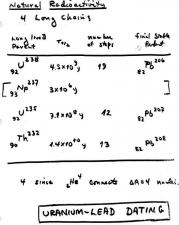 Natural Radioactivity
4 Long Chains
Long lived Parent T½ number of steps final stable Product
92 U 238 4.5×10⁹y 19 82 Pb 206
[ 93 Np 237 3×10⁶y ]
92 U 235 7.1×10⁸y 12 82 Pb 207
90 Th 232 1.4×10¹⁰y 13 82 Pb 208
4 since ₂He⁴ connects ΔA=4 nuclei.
URANIUM-LEAD DATING